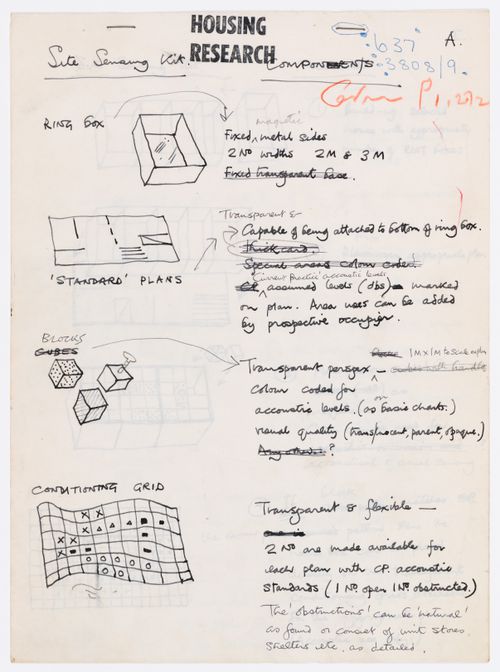 HOUSING
RESEARCH
A.
Site Sensing Kit COMPONENTS
637
3808/9.
P1, 2
RING BOX
magnetic
Fixed, metal sides
2 No widths 2M & 3M
Fixed transparent base.
Transparent &
Capable of being attached to bottom of ring box.
Thick card.
Special areas colour coded.
'STANDARD' PLANS
'current practice' acoustic levels
CP assumed levels (dbs) marked
on plan. Area uses can be added
by prospective occupier.
BLOCKS
CUBES
1M x 1M to scale
Transparent perspex — cubes with handle
Colour coded for
acoustic levels. (as on basic charts.)
visual quality (translucent, parent, opaque.)
Any other..?
CONDITIONING GRID
Transparent & flexible —
2 No are made available for
each plan with CP. acoustic
standards (1 No. open 1 No. obstructed.)
The 'obstructions' can be 'natural'
as found or consist of unit stores.
shelters etc. as detailed.